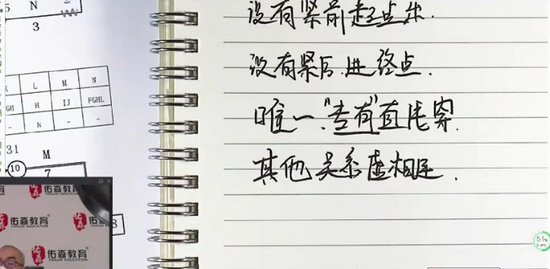 5 N 2
3
K L M N
GH H IJ FGHL
- N - -
31 M
10 7
8
没有紧前起点出
没有紧后进终点.
唯一.“专有”直
其他关系虚相连.
佑森教育
佑森教育
51%